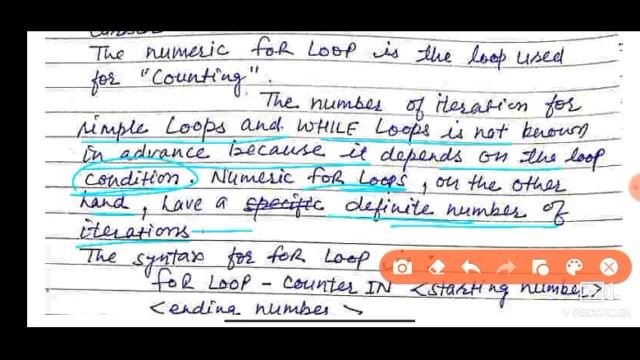 The numeric foR LOOP is the loop used
for "Counting".
The number of iteration for
simple Loops and WHILE Loops is not known
in advance because it depends on the loop
condition. Numeric foR Loops, on the other
hand, have a specific definite number of
iterations
The syntax for foR LOOP
foR LOOP - counter IN <starting number>
<ending number >
V RECORDER